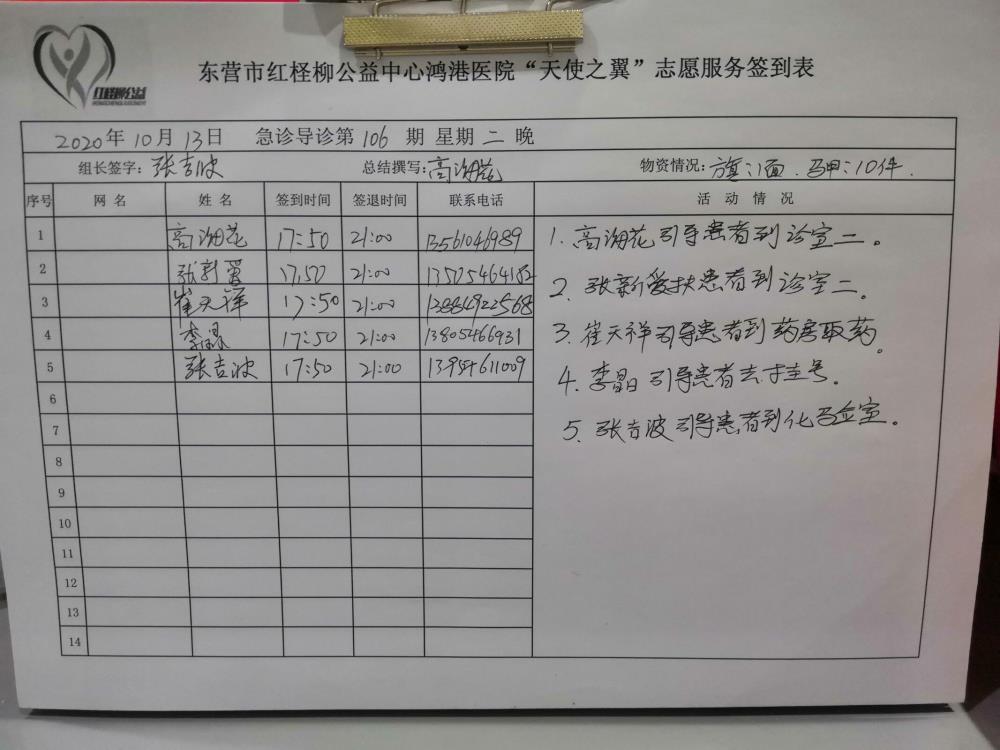 红柽柳公益
东营市红柽柳公益中心鸿港医院“天使之翼”志愿服务签到表
2020年10月13日 急诊导诊第106期 星期二 晚
组长签字：张吉波 总结撰写：高湘花 物资情况：旗：1面．马甲：10件．
序号 网名 姓名 签到时间 签退时间 联系电话 活动情况
1 高湘花 17:50 21:00 13561046989
2 张新爱 17.50 21:00
3 崔天祥 17:50 21:00
4 李晶 17:50 21:00 13805466931
5 张吉波 17:50 21:00 13954611009
6
7
8
9
10
11
12
13
14
1. 高湘花引导患者到诊室二。
2. 张新爱扶患者到诊室二。
3. 崔天祥引导患者到药房取药。
4. 李晶引导患者去挂号。
5. 张吉波引导患者到化验室。